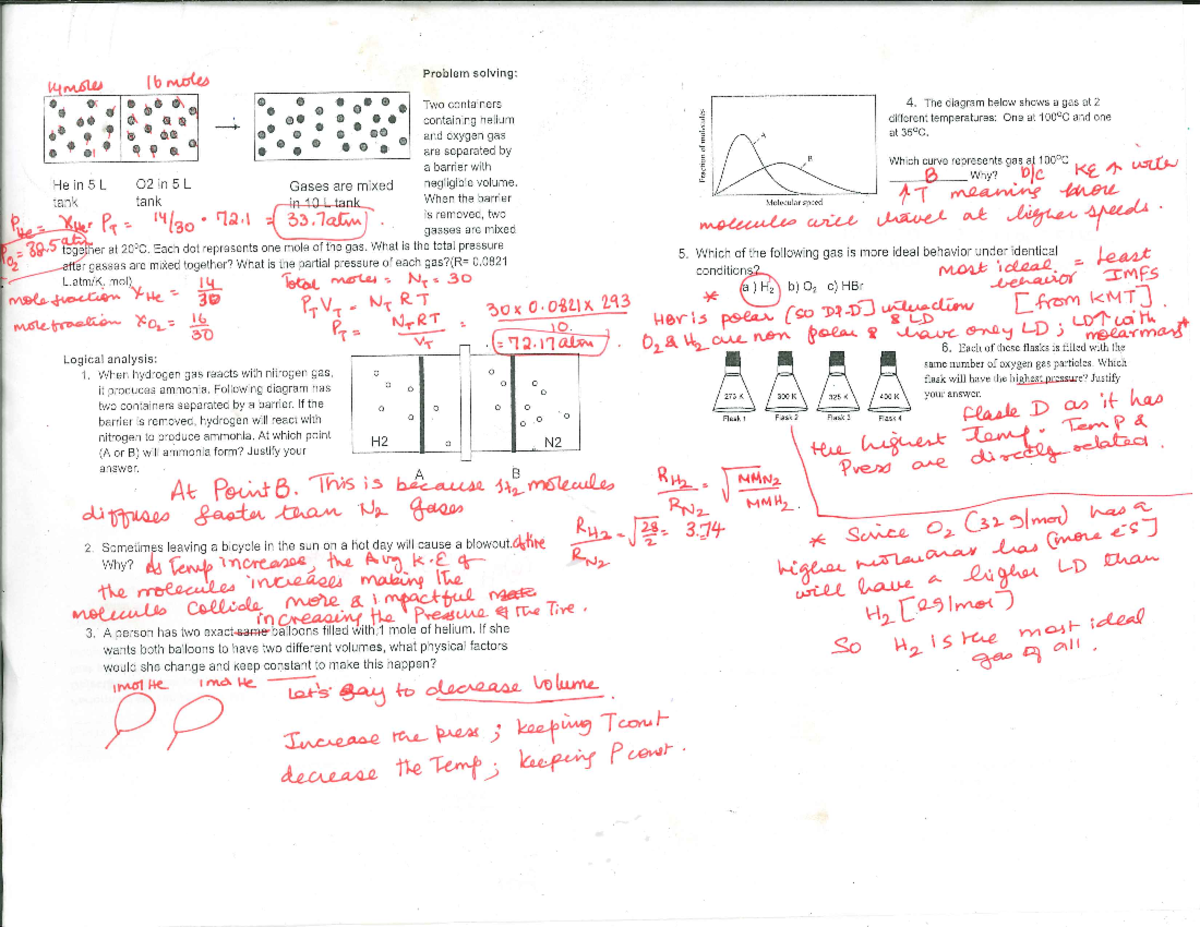 Problem solving:
14 moles 16 moles
Two containers
containing helium
and oxygen gas
are separated by
a barrier with
negligible volume.
When the barrier
is removed, two
gasses are mixed
He in 5 L
tank
O2 in 5 L
tank
Gases are mixed
in 10 L tank
P He = X He · P T = 14/30 · 72.1 = 33.7atm
P O2 = 38.5 atm
together at 20ºC. Each dot represents one mole of the gas. What is the total pressure
after gasses are mixed together? What is the partial pressure of each gas?(R= 0.0821
L.atm/K. mol)
mole fraction X He = 14/30
mole fraction X O2 = 16/30
Total moles = N T = 30
P T V T = N T R T
P T = N T R T / V T = 30 x 0.0821 x 293 / 10.
= 72.17 atm
Logical analysis:
1. When hydrogen gas reacts with nitrogen gas,
it produces ammonia. Following diagram has
two containers separated by a barrier. If the
barrier is removed, hydrogen will react with
nitrogen to produce ammonia. At which point
(A or B) will ammonia form? Justify your
answer.
H2 N2
A B
At Point B. This is because H2 molecules
diffuses faster than N2 gases
R H2 / R N2 = √ MM N2 / MM H2 .
R H2 / R N2 = √ 28/2 = 3.74
2. Sometimes leaving a bicycle in the sun on a hot day will cause a blowout. of tire
Why? As Temp increases, the Avg K.E of
the molecules increases making the
molecules collide more & impactful
increasing the Pressure of the Tire.
3. A person has two exact same balloons filled with 1 mole of helium. If she
wants both balloons to have two different volumes, what physical factors
would she change and keep constant to make this happen?
1mol He 1mol He
Let's say to decrease volume
Increase the press ; keeping T const
decrease the Temp ; keeping P const.
Fraction of molecules
A
B
Molecular speed
4. The diagram below shows a gas at 2
different temperatures: One at 100ºC and one
at 35ºC.
Which curve represents gas at 100ºC
B Why? b/c KE ↑ with
↑T meaning more
molecules will travel at higher speeds.
5. Which of the following gas is more ideal behavior under identical
conditions?
a) H2 b) O2 c) HBr
most ideal behavior = Least IMFS
[from KMT].
* HBr is polar (so DP-D) interaction & LD
O2 & H2 are non polar & have only LD ; LD↑ with molarmass↑
6. Each of these flasks is filled with the
same number of oxygen gas particles. Which
flask will have the highest pressure? Justify
your answer.
273 K 300 K 325 K 400 K
Flask 1 Flask 2 Flask 3 Flask 4
flask D as it has
the highest Temp. Temp &
Press are directly related.
* Since O2 (32 g/mol) has a
higher molarmass has (more e's]
will have a higher LD than
H2 [2g/mol)
So H2 is the most ideal
gas of all.